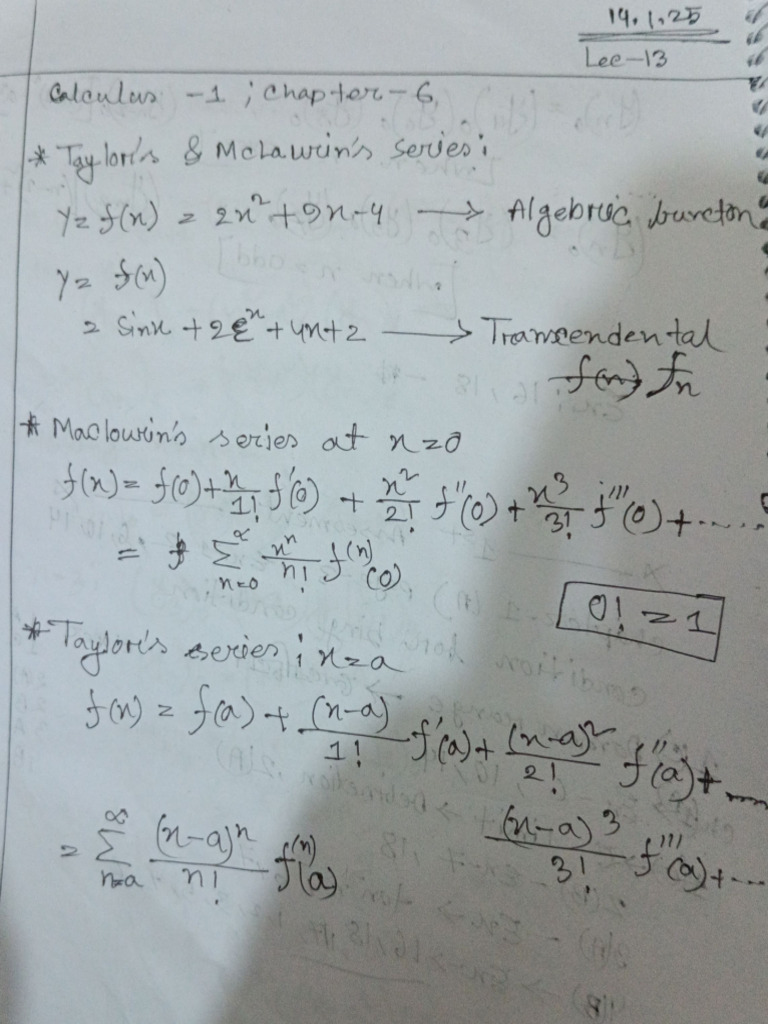 14.1.25
Lec-13
Calculus -1 ; Chapter-6
* Taylor's & McLaurin's series:
y = f(x) = 2x² + 9x - 4 → Algebric function
y = f(x)
= sinx + 2e^x + 4x + 2 → Transcendental
f(x) fn
* Maclourin's series at x=0
f(x) = f(0) + x/1! f'(0) + x²/2! f''(0) + x³/3! f'''(0) + ......
= ∑_{n=0}^{∞} x^n/n! f^(n)(0)
0! = 1
* Taylor's series ; x=a
f(x) = f(a) + (x-a)/1! f'(a) + (x-a)²/2! f''(a) + ....
(x-a)³/3! f'''(a) + ...
= ∑_{n=a}^{∞} (x-a)^n/n! f^(n)(a)